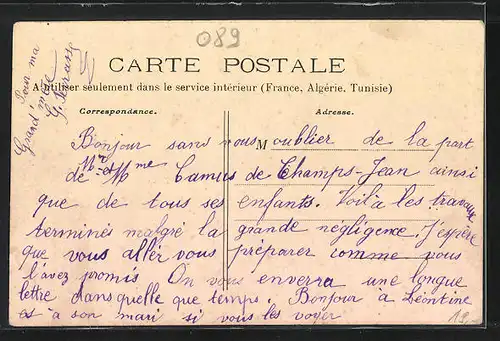 089
Pour ma
Grand'mère
CARTE POSTALE
A utiliser seulement dans le service intérieur (France, Algérie, Tunisie)
Correspondance.
Adresse.
M
Bonjour sans vous oublier de la part
de Mr et Mme Camus de Champs-Jean ainsi
que de tous ses enfants. Voilà les travaux
terminés malgré la grande négligence. J'espère
que vous aller vous préparer comme vous
l'avez promis On vous enverra une longue
lettre dans quelle que temps. Bonjour a Léontine
et a son mari si vous les voyer